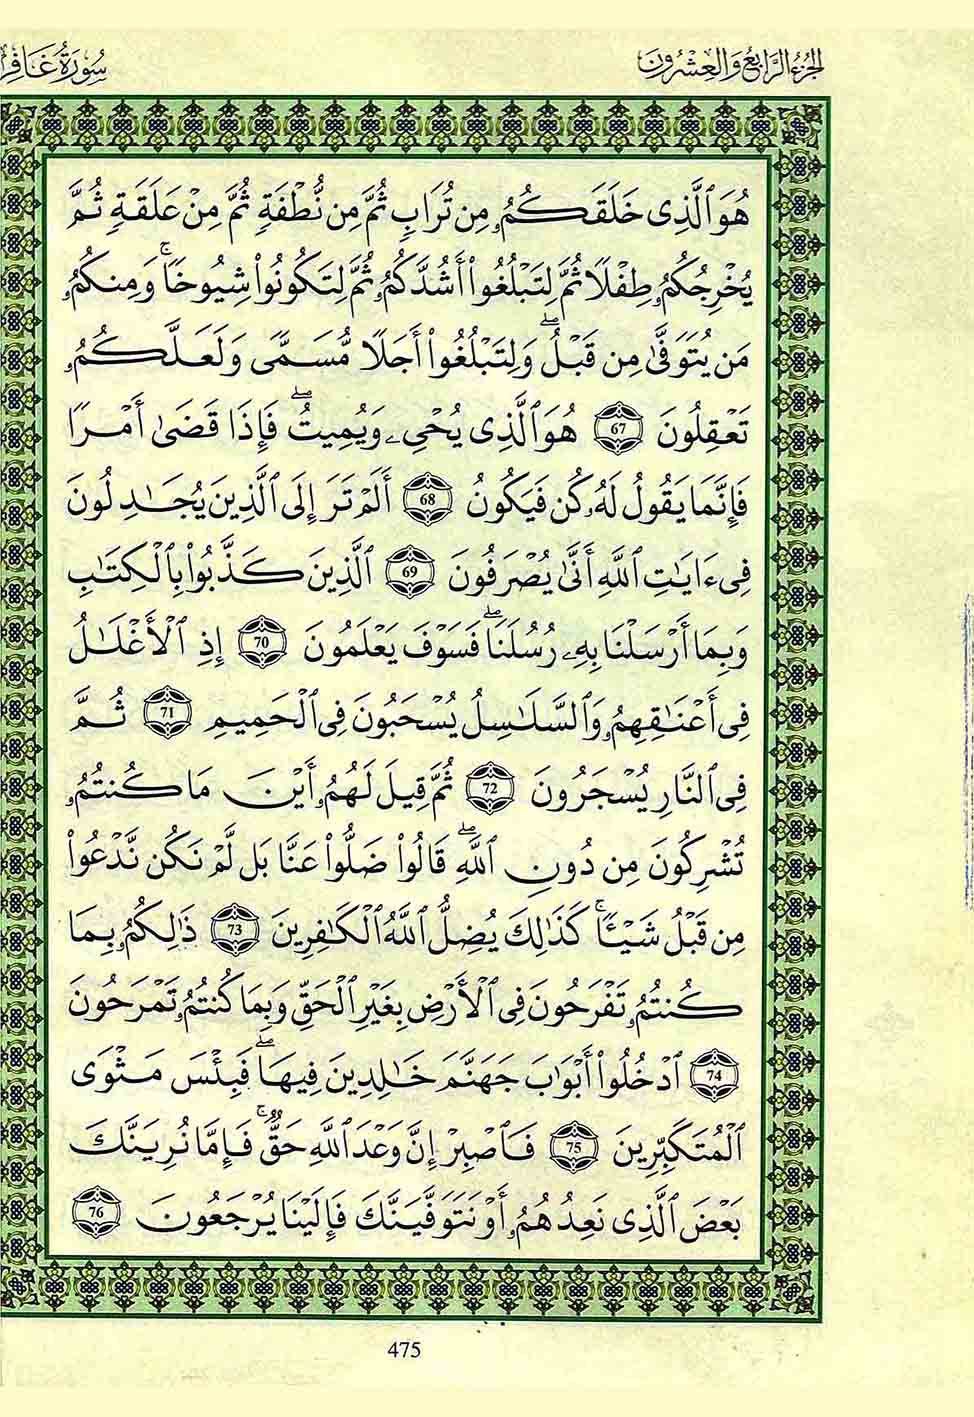 الجزء الرابع والعشرون
سورة غافر
هُوَ ٱلَّذِى خَلَقَكُمُۥ مِن تُرَابٍ ثُمَّ مِن نُّطْفَةٍ ثُمَّ مِنْ عَلَقَةٍ ثُمَّ
يُخْرِجُكُمُۥ طِفْلًا ثُمَّ لِتَبْلُغُوٓا۟ أَشُدَّكُمُۥ ثُمَّ لِتَكُونُوا۟ شِيُوخًا ۚ وَمِنكُمُۥ
مَن يُتَوَفَّىٰ مِن قَبْلُ ۖ وَلِتَبْلُغُوٓا۟ أَجَلًا مُّسَمًّى وَلَعَلَّكُمُۥ
تَعْقِلُونَ 67 هُوَ ٱلَّذِى يُحْىِۦ وَيُمِيتُ ۖ فَإِذَا قَضَىٰٓ أَمْرًا
فَإِنَّمَا يَقُولُ لَهُۥ كُن فَيَكُونُ 68 أَلَمْ تَرَ إِلَى ٱلَّذِينَ يُجَـٰدِلُونَ
فِىٓ ءَايَـٰتِ ٱللَّهِ أَنَّىٰ يُصْرَفُونَ 69 ٱلَّذِينَ كَذَّبُوا۟ بِٱلْكِتَـٰبِ
وَبِمَآ أَرْسَلْنَا بِهِۦ رُسُلَنَا ۖ فَسَوْفَ يَعْلَمُونَ 70 إِذِ ٱلْأَغْلَـٰلُ
فِىٓ أَعْنَـٰقِهِمُۥ وَٱلسَّلَـٰسِلُ يُسْحَبُونَ فِى ٱلْحَمِيمِ 71 ثُمَّ
فِى ٱلنَّارِ يُسْجَرُونَ 72 ثُمَّ قِيلَ لَهُمُۥٓ أَيْنَ مَا كُنتُمُۥ
تُشْرِكُونَ مِن دُونِ ٱللَّهِ ۖ قَالُوا۟ ضَلُّوا۟ عَنَّا بَل لَّمْ نَكُن نَّدْعُوا۟
مِن قَبْلُ شَيْـًٔا ۚ كَذَٰلِكَ يُضِلُّ ٱللَّهُ ٱلْكَـٰفِرِينَ 73 ذَٰلِكُمُۥ بِمَا
كُنتُمُۥ تَفْرَحُونَ فِى ٱلْأَرْضِ بِغَيْرِ ٱلْحَقِّ وَبِمَا كُنتُمُۥ تَمْرَحُونَ
74 ٱدْخُلُوٓا۟ أَبْوَٰبَ جَهَنَّمَ خَـٰلِدِينَ فِيهَا ۖ فَبِئْسَ مَثْوَى
ٱلْمُتَكَبِّرِينَ 75 فَٱصْبِرْ إِنَّ وَعْدَ ٱللَّهِ حَقٌّ ۚ فَإِمَّا نُرِيَنَّكَ
بَعْضَ ٱلَّذِى نَعِدُهُمُۥٓ أَوْ نَتَوَفَّيَنَّكَ فَإِلَيْنَا يُرْجَعُونَ 76
475